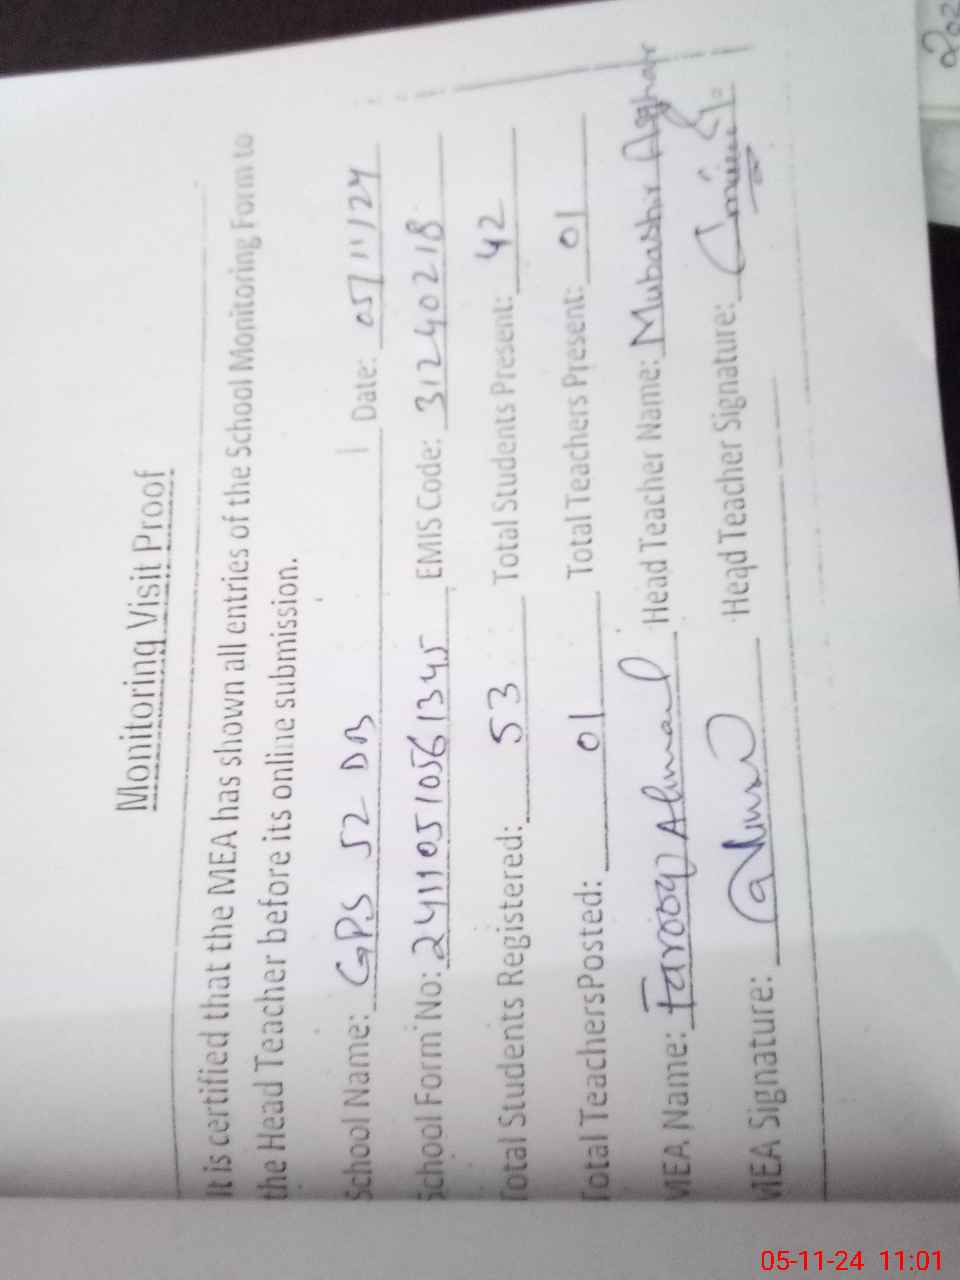 Monitoring Visit Proof
It is certified that the MEA has shown all entries of the School Monitoring Form to
the Head Teacher before its online submission.
School Name: GPS 52 DB Date: 05/11/24
School Form No: 24110510561345 EMIS Code: 31240218
Total Students Registered: 53 Total Students Present: 42
Total Teachers Posted: 01 Total Teachers Present: 01
MEA Name: Farooq Ahmad Head Teacher Name: Mubashir Asghar
MEA Signature: Head Teacher Signature:
202
05-11-24 11:01